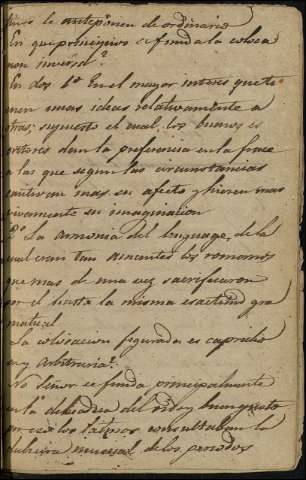 tinos le anteponen de ordinario
En que principios se funda la coloca
cion inversa?
En dos 1º En el mayor interes que tie
nen unas ideas relativamente a
otras; supuesto el cual, los buenos es
critores dan la preferencia en la frace
a las que segun las circunstancias
cautivan mas su afecto y hieren mas
vivamente su imaginacion
2º La armonia del lenguage, de la
cual eran tan amantes los romanos
que mas de una vez sacrificaron
por el hasta la misma esactitud gra
matical
La colocacion figurada es capricho
sa y arbitraria?
No Señor se funda principalmente
en la delicadeza del oido y buen gusto
por eso los latinos consultaban la
dulzura musical de los periodos